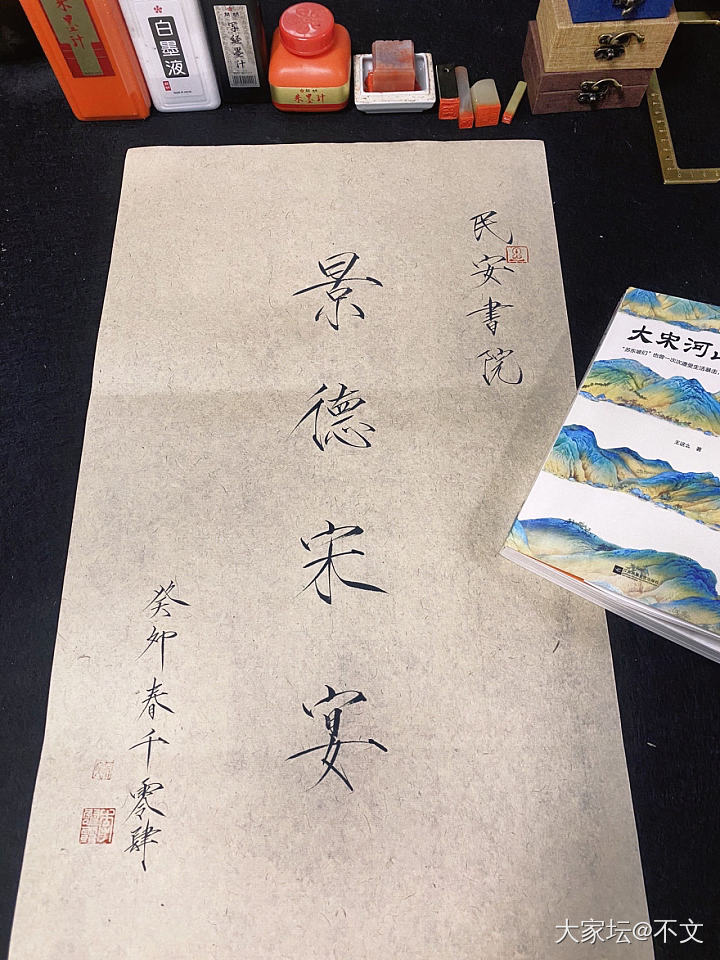 朱墨汁
白墨液
朱墨汁
民安书院
景德宋宴
癸卯春千零肆
大宋河山
王这么 著
大家坛@不文